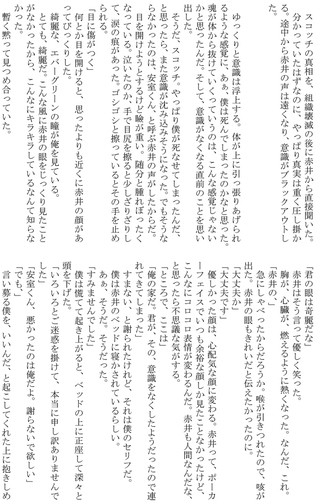 スコッチの真相を、組織壊滅の後に赤井から直接聞いた。
分かっていたはずなのに、やっぱり真実は重く圧し掛か
る。途中から赤井の声は遠くなり、意識がブラックアウトし
た。
ゆっくりと意識は浮上する。体が上に引っ張りあげられ
るような感覚に、あぁ、僕は死んでしまったのかと思った。
魂が体から抜けて昇っていくのは、こんな感覚じゃない
かと思ったんだ。そして、意識がなくなる直前のことを思い
出した。
そうだ、スコッチ。やっぱり僕が死なせてしまったんだ、
と思ったら、また意識が沈み込みそうになった。でもそうな
らなかったのは、安室くん、と呼ぶ赤井の声がしたからだ。
目を開けようとするけど瞼が重い。随分と腫れぼったく
なっている。泣いたのか、手で目尻を擦るとひりひりし
て、涙の痕があった。ゴシゴシと擦っているとその手を止め
られる。
「目に傷がつく」
何とか目を開けると、思ったよりも近くに赤井の顔があ
ってびっくりした。
綺麗な、エバーグリーンの瞳が俺を見ている。
とても、綺麗だ。こんな風に赤井の眼をじっくり見たこと
がなかったから、こんなにキラキラしているなんて知らな
かった。
暫く黙って見つめ合っていた。
「君の眼は奇麗だな」
赤井はそう言って優しく笑った。
胸が、心臓が、燃えるように熱くなった。なんだ、これ。
「赤井の、」
急にしゃべったからだろうか。喉が引きつれたので、咳が
出た。赤井の眼もきれいだと伝えたかったのに。
「大丈夫か」
「大丈夫です」
優しかった顔は、心配気な顔に変わる。赤井って、ポーカ
ーフェイスでいつも余裕な顔しか見たことなかったけど、
こんなにコロコロ表情が変わるんだ。赤井も人間なんだな、
と思ったら不思議な気がする。
「ところで、ここは」
「俺の家だ。君が、その、意識をなくしたようだったので連
れてきてしまった」
すまない、と謝られたけれど、それは僕のセリフだ。
僕は赤井のベッドに寝かされているらしい。
あぁ、そうだ。そうだった。
「すみませんでした」
僕は慌てて起き上がると、ベッドの上に正座して深々と
頭を下げた。
「いろいろとご迷惑を掛けて、本当に申し訳ありませんで
した」
「安室くん、悪かったのは俺だよ。謝らないで欲しい」
「でも」
言い募る僕を、いいんだ、と起こしてくれた上に抱きしめ